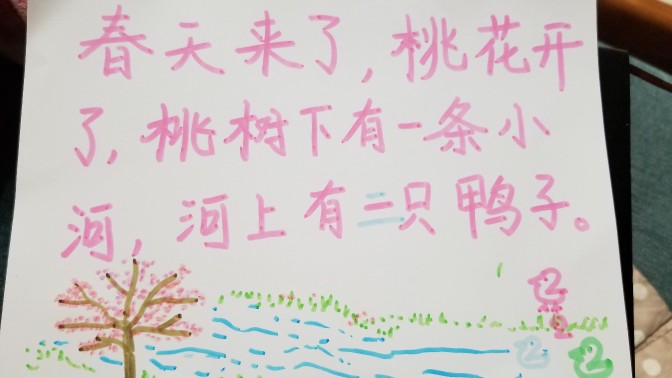 春天来了,桃花开
了,桃树下有一条小
河,河上有三只鸭子。